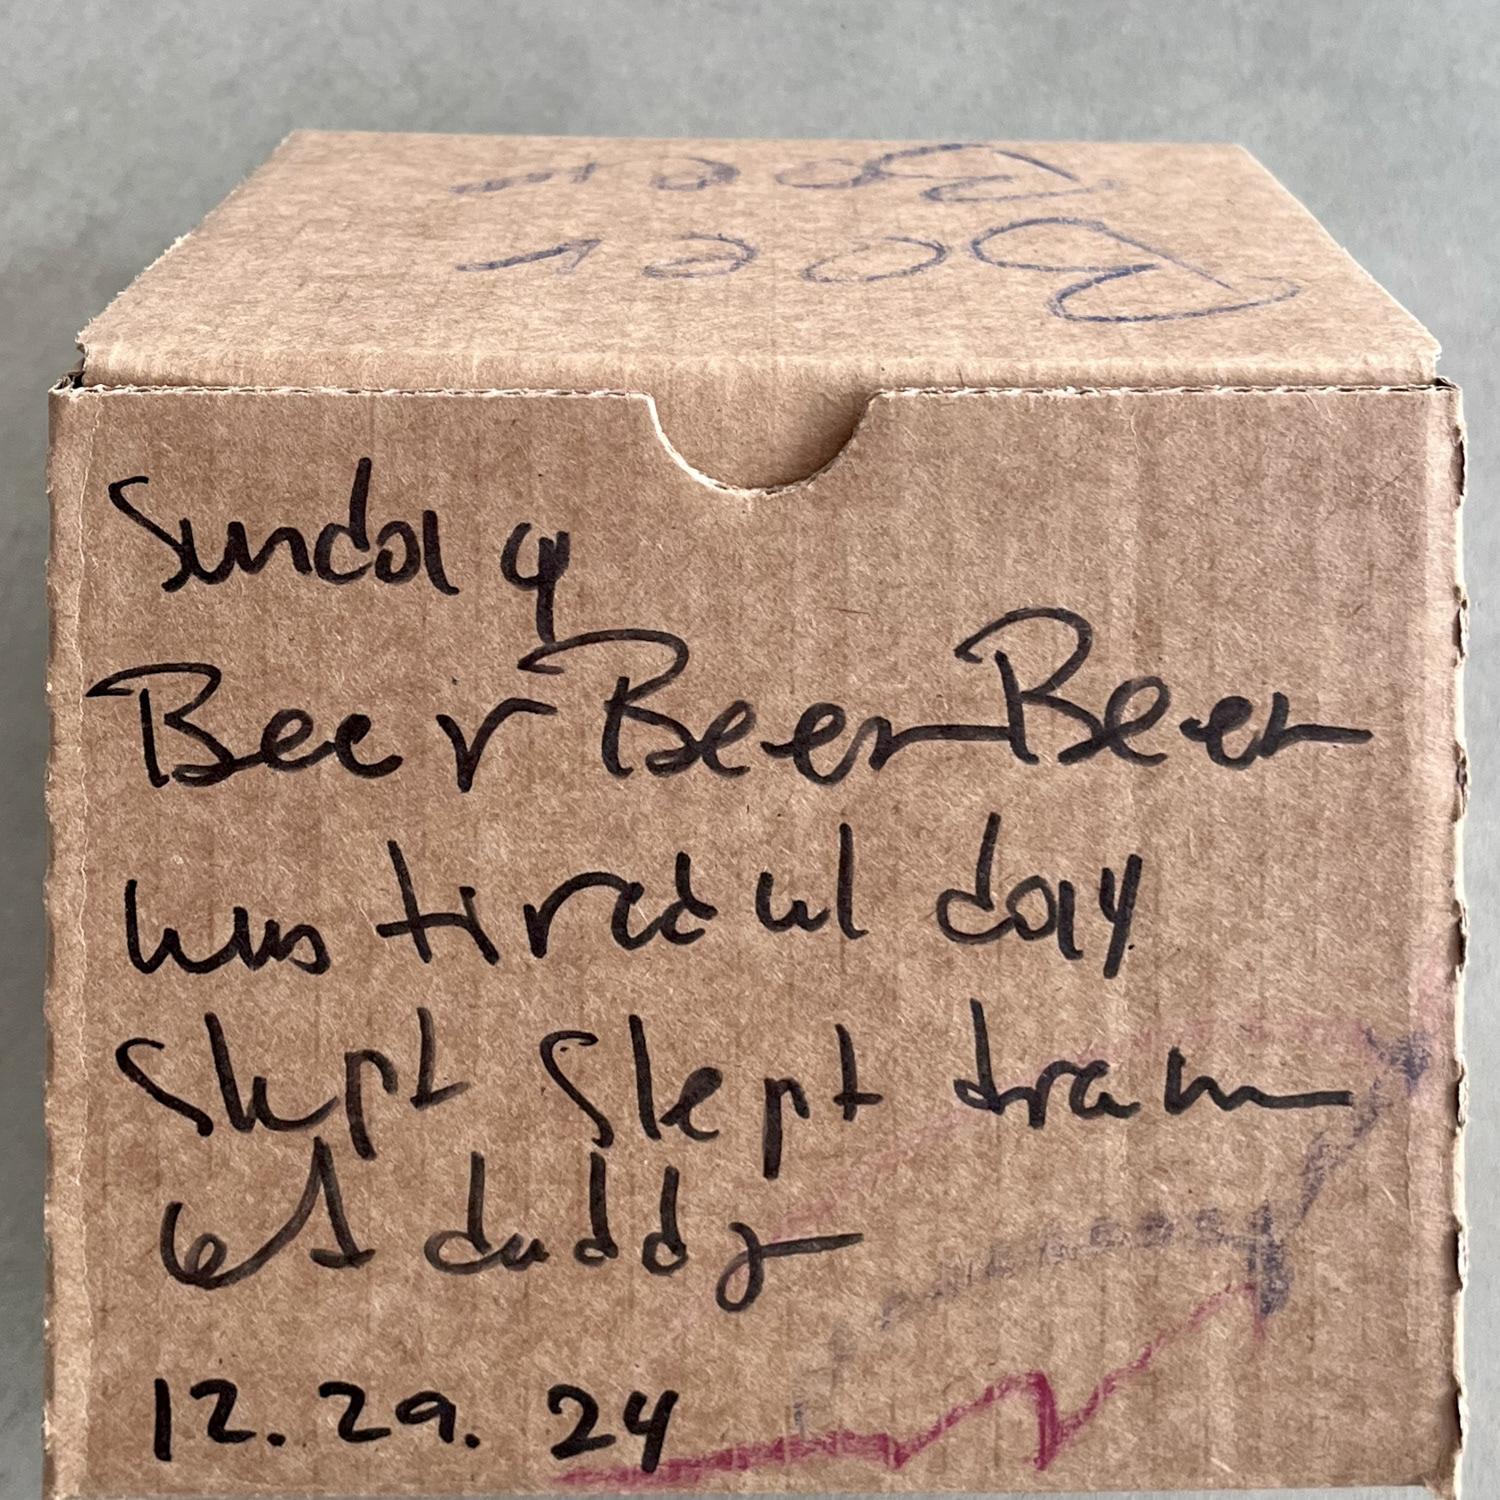 Beer
Beer
Sunday
Beer Beer Beer
was tired all day
Slept Slept dream
daddy
12.29.24